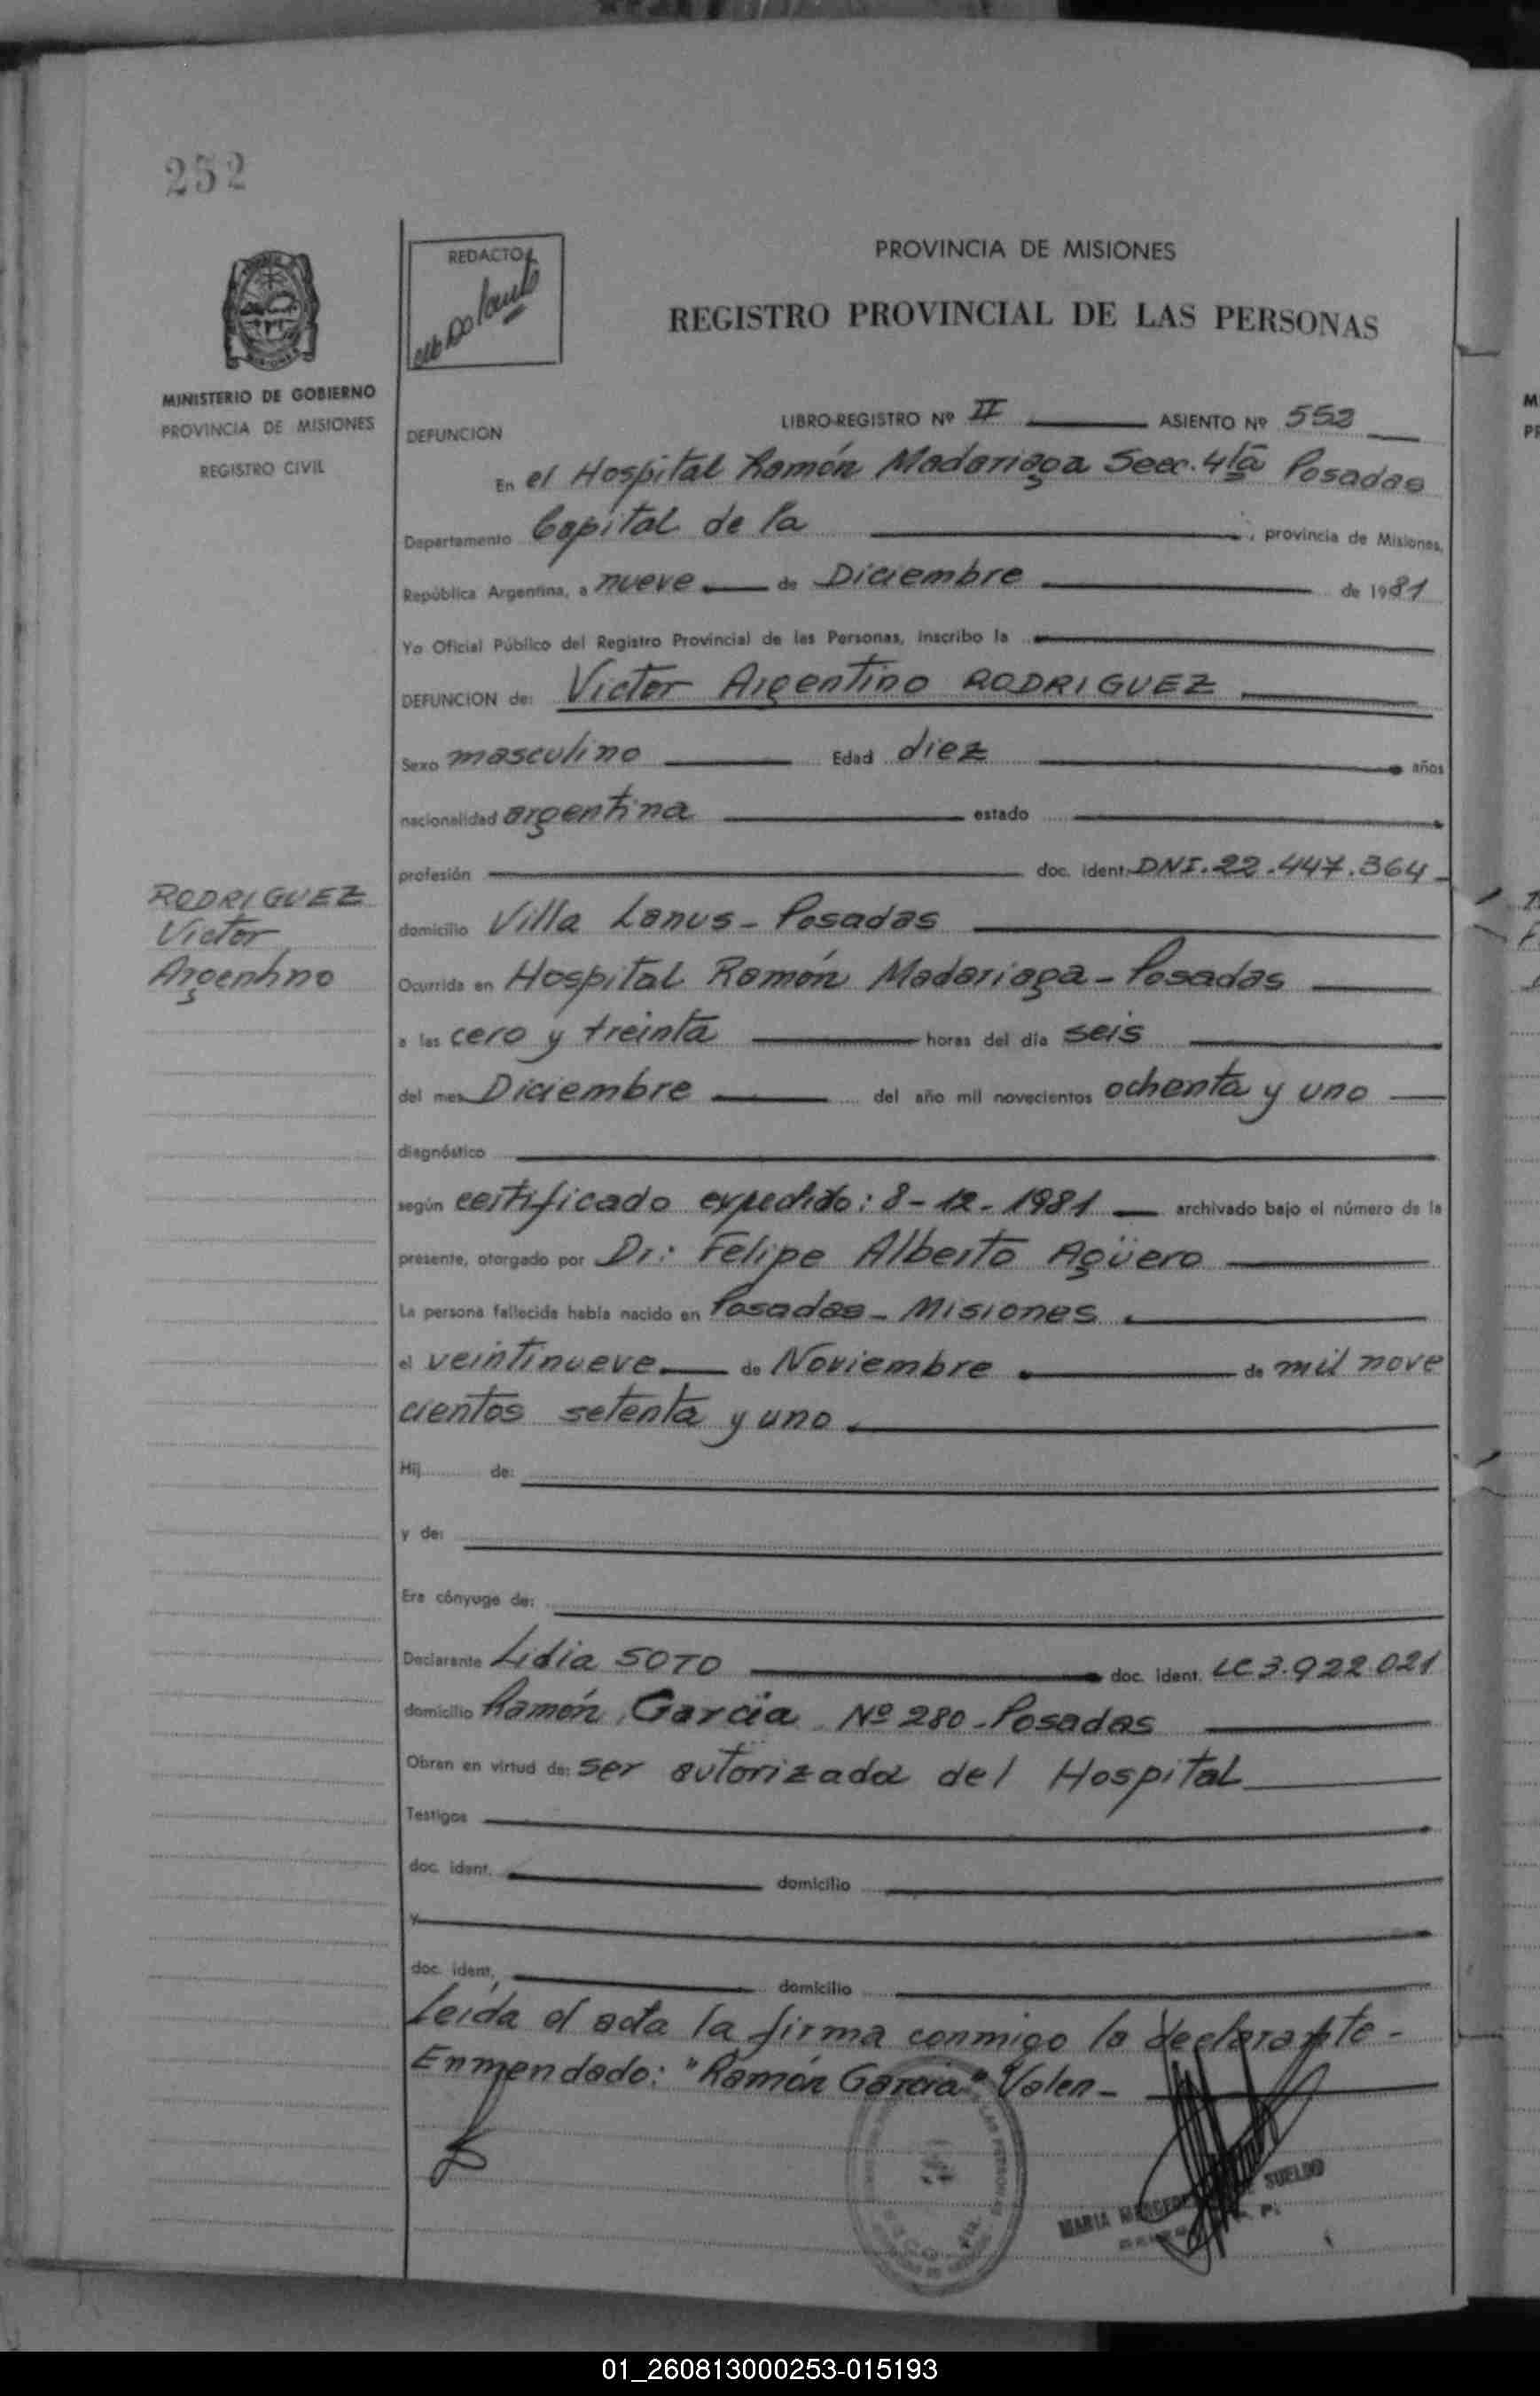 252
REDACTO
PROVINCIA DE MISIONES
REGISTRO PROVINCIAL DE LAS PERSONAS
MINISTERIO DE GOBIERNO
PROVINCIA DE MISIONES
REGISTRO CIVIL
LIBRO-REGISTRO Nº II ASIENTO Nº 552
DEFUNCION
En el Hospital Ramón Madariaga Secc. 4ta Posadas
Departamento Capital de la , provincia de Misiones,
República Argentina, a nueve de Diciembre de 1981
Yo Oficial Público del Registro Provincial de las Personas, inscribo la
DEFUNCION de: Victor Argentino RODRIGUEZ
Sexo masculino Edad diez años
nacionalidad argentina estado
profesión doc. ident. DNI. 22.447.364
RODRIGUEZ
Victor
Argentino
domicilio Villa Lanus - Posadas
Ocurrida en Hospital Ramón Madariaga - Posadas
a las cero y treinta horas del día seis
del mes Diciembre del año mil novecientos ochenta y uno
diagnóstico
según certificado expedido: 8-12-1981 archivado bajo el número de la
presente, otorgado por Dr: Felipe Alberto Agüero
La persona fallecida había nacido en Posadas - Misiones
el veintinueve de Noviembre de mil nove
cientos setenta y uno
Hij de:
y de:
Era cónyuge de:
Declarante Lidia SOTO doc. ident. LC 3.922.021
domicilio Ramón Garcia Nº 280 - Posadas
Obran en virtud de: ser autorizada del Hospital
Testigos
doc. ident. domicilio
y
doc. ident. domicilio
Leída el acta la firma conmigo la declarante -
Enmendado: "Ramón Garcia" Valen -
MARIA SUELDO
01_260813000253-015193